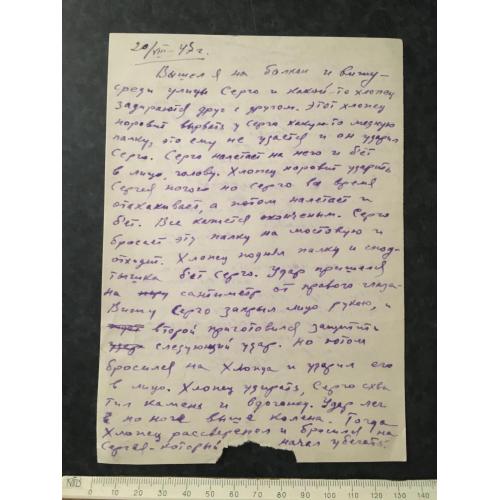 20/VIII-45г.
Вышел я на балкон и вижу-
среди улицы Серго и какой-то хлопец
задираются друг с другом. Этот хлопец
норовит вырвать у Серго какую-то медную
палку, это ему не удается и он ударил
Серго. Серго налетает на него и бет
в лицо, голову. Хлопец норовит ударить
Сергея ногою но Серго во время
отскакивает, а потом налетает и
бет. Все кажется оконченым. Серго
бросает эту палку на мостовую и
отходит. Хлопец поднял палку и спод-
тышка бет Серго. Удар пришелся
на сантиметр от правого глаза-
Вижу Серго закрыл лицо рукою, и
второй приготовился защитить
следующий удар. Но потом
бросился на Хлопца и ударил его
в лицо. Хлопец удирать, Серго схва
тил камень и вдогонку. Удар лег
по ноге выше колена. Тогда
Хлопец рассверепел и бросился на
Сергея-который начал убегать.
0 10 20 30 40 50 60 70 80 90 100 110 120 130 140